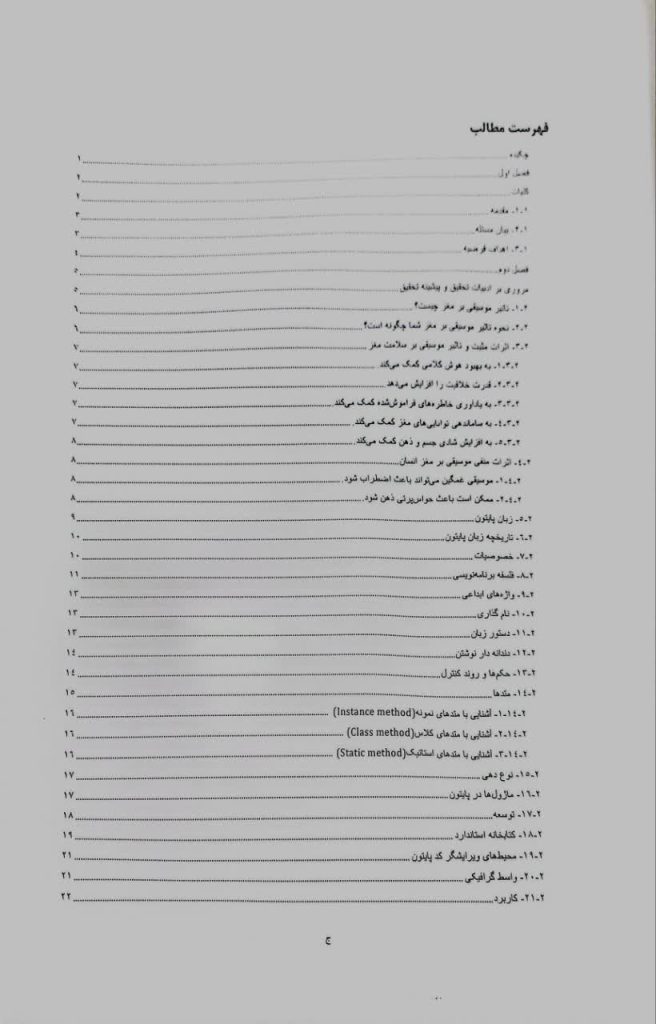 فهرست مطالب
چکیده ........ ۱
فصل اول ........ ۲
کلیات ........ ۲
۱-۱- مقدمه ........ ۳
۲-۱- بیان مسئله ........ ۳
۳-۱- اهداف فرضیه ........ ۴
فصل دوم ........ ۵
مروری بر ادبیات تحقیق و پیشینه تحقیق ........ ۵
۱-۲- تاثیر موسیقی بر مغز چیست؟ ........ ۶
۲-۲- نحوه تاثیر موسیقی بر مغز شما چگونه است؟ ........ ۶
۳-۲- اثرات مثبت و تاثیر موسیقی بر سلامت مغز ........ ۷
۱-۳-۲- به بهبود هوش کلامی کمک می‌کند ........ ۷
۲-۳-۲- قدرت خلاقیت را افزایش می‌دهد ........ ۷
۳-۳-۲- به یادآوری خاطره‌های فراموش‌شده کمک می‌کند ........ ۷
۴-۳-۲- به ساماندهی توانایی‌های مغز کمک می‌کند ........ ۷
۵-۳-۲- به افزایش شادی جسم و ذهن کمک می‌کند ........ ۸
۴-۲- اثرات منفی موسیقی بر مغز انسان ........ ۸
۱-۴-۲- موسیقی غمگین می‌تواند باعث اضطراب شود ........ ۸
۲-۴-۲- ممکن است باعث حواس‌پرتی ذهن شود ........ ۸
۵-۲- زبان پایتون ........ ۹
۶-۲- تاریخچه زبان پایتون ........ ۱۰
۷-۲- خصوصیات ........ ۱۰
۸-۲- فلسفه برنامه‌نویسی ........ ۱۱
۹-۲- واژه‌های ابداعی ........ ۱۳
۱۰-۲- نام گذاری ........ ۱۳
۱۱-۲- دستور زبان ........ ۱۳
۱۲-۲- دندانه دار نوشتن ........ ۱۴
۱۳-۲- حکم‌ها و روند کنترل ........ ۱۴
۱۴-۲- متدها ........ ۱۵
۱-۱۴-۲- آشنایی با متدهای نمونه(Instance method) ........ ۱۶
۲-۱۴-۲- آشنایی با متدهای کلاس(Class method) ........ ۱۶
۳-۱۴-۲- آشنایی با متدهای استاتیک(Static method) ........ ۱۶
۱۵-۲- نوع دهی ........ ۱۷
۱۶-۲- ماژول‌ها در پایتون ........ ۱۷
۱۷-۲- توسعه ........ ۱۸
۱۸-۲- کتابخانه استاندارد ........ ۱۹
۱۹-۲- محیط‌های ویرایشگر کد پایتون ........ ۲۱
۲۰-۲- واسط گرافیکی ........ ۲۱
۲۱-۲- کاربرد ........ ۲۲
ج